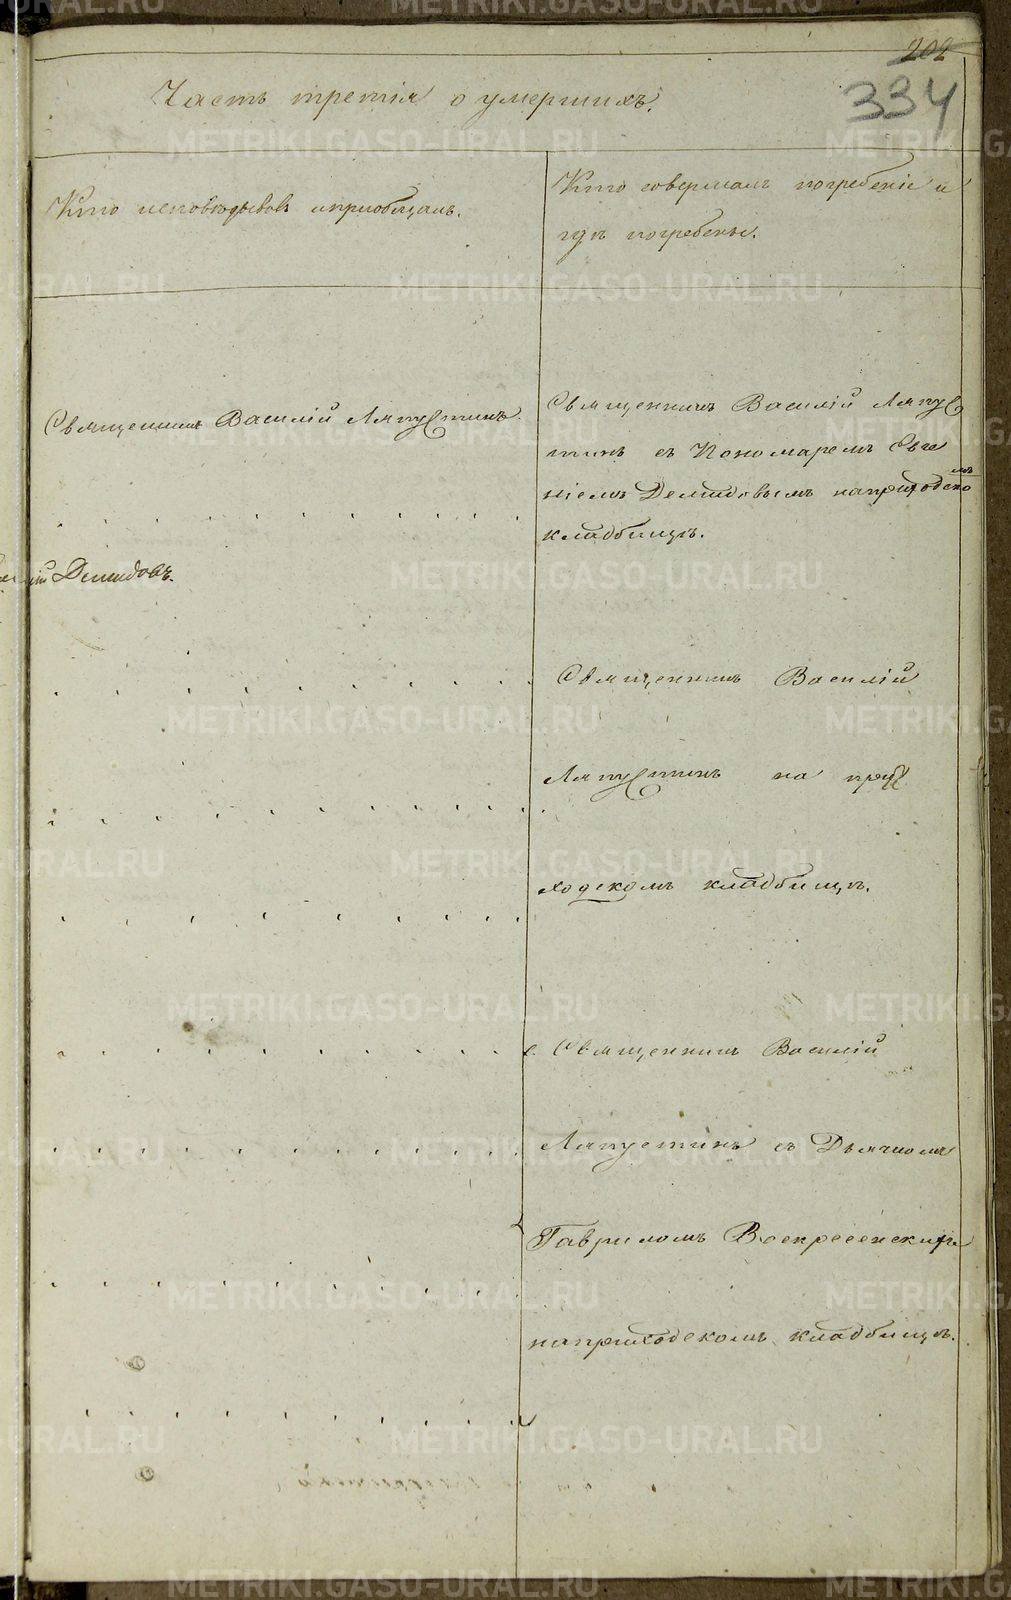 202
334
Часть третія о умершихъ.
Кто исповѣдывалъ и приобщалъ.
Кто совершалъ погребеніе и
гдѣ погребены.
Священникъ Василій Ляпустинъ
Священникъ Василій Ляпус
тинъ съ Пономаремъ Евге
ніемъ Демидовымъ на приходскомъ
кладбищѣ.
Демидовъ.
Священникъ Василій
Ляпустинъ на при
ходскомъ кладбищѣ.
Священникъ Василій
Ляпустинъ съ Дьячкомъ
Гавриломъ Воскресенскимъ
на приходскомъ кладбищѣ.
METRIKI.GASO-URAL.RU